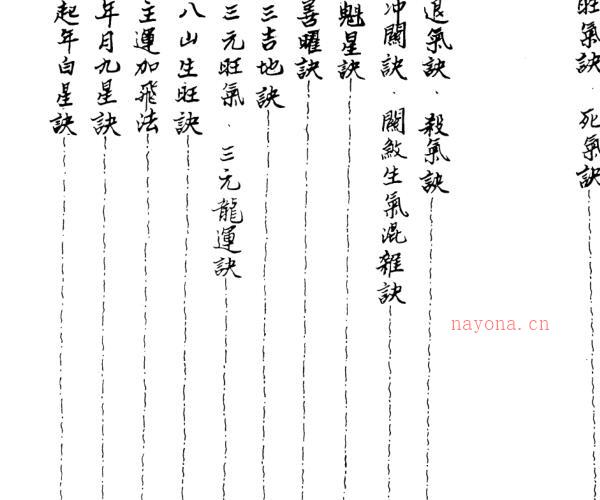 旺氣訣．死氣訣
退氣訣．殺氣訣
沖關訣．關煞生氣混雜訣
魁星訣
善曜訣
三吉地訣
三元旺氣．三元龍運訣
八山生旺訣
主運加飛法
年月九星訣
起年白星訣
nayona.cn